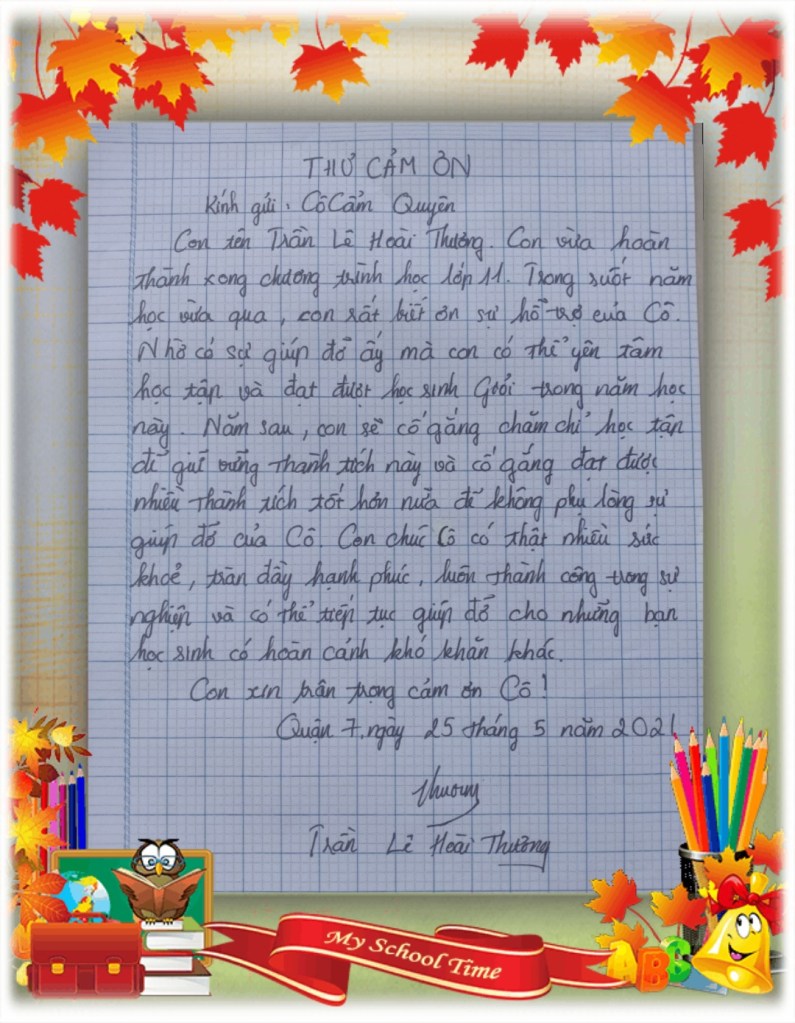 THƯ CẢM ƠN
Kính gửi : Cô Cẩm Quyên
Con tên Trần Lê Hoài Thương. Con vừa hoàn
thành xong chương trình học lớp 11. Trong suốt năm
học vừa qua, con rất biết ơn sự hỗ trợ của Cô.
Nhờ có sự giúp đỡ ấy mà con có thể yên tâm
học tập và đạt được học sinh Giỏi trong năm học
này. Năm sau, con sẽ cố gắng chăm chỉ học tập
để giữ vững thành tích này và cố gắng đạt được
nhiều thành tích tốt hơn nữa để không phụ lòng sự
giúp đỡ của Cô. Con chúc Cô có thật nhiều sức
khoẻ, tràn đầy hạnh phúc, luôn thành công trong sự
nghiệp và có thể tiếp tục giúp đỡ cho những bạn
học sinh có hoàn cảnh khó khăn khác.
Con xin trân trọng cảm ơn Cô!
Quận 7, ngày 25 tháng 5 năm 2021
Thương
Trần Lê Hoài Thương
My School Time
ABC